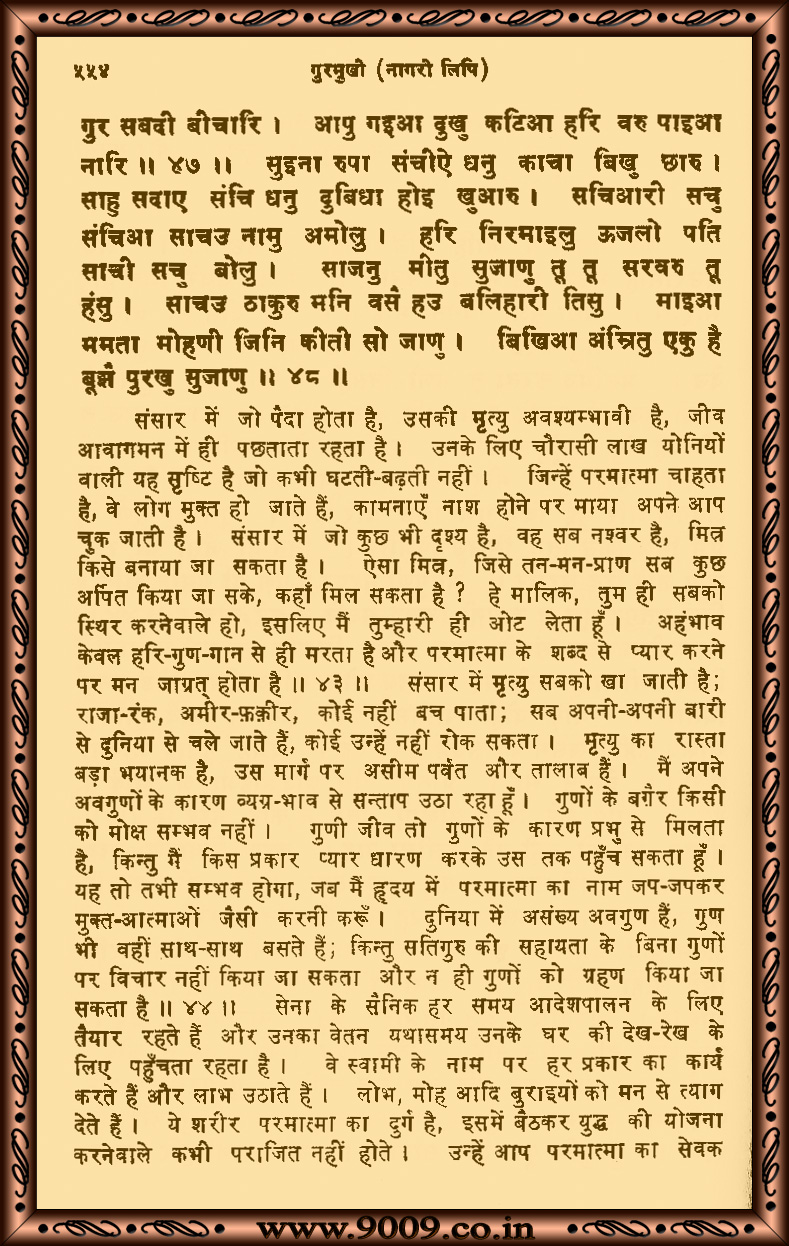 ५५४ गुरमुखी (नागरी लिपि)
गुर सबदी बीचारि । आपु गइआ दुखु कटिआ हरि वरु पाइआ
नारि ॥ ४७ ॥ सुइना रुपा संचीऐ धनु काचा बिखु छारु ।
साहु सदाए संचि धनु दुबिधा होइ खुआरु । सचिआरी सचु
संचिआ साचउ नामु अमोलु । हरि निरमाइलु ऊजलो पति
साची सचु बोलु । साजनु मीतु सुजाणु तू तू सरवरु तू
हंसु । साचउ ठाकुरु मनि वसै हउ बलिहारी तिसु । माइआ
ममता मोहणी जिनि कीती सो जाणु । बिखिआ अंम्रितु एकु है
बूझै पुरखु सुजाणु ॥ ४८ ॥
संसार में जो पैदा होता है, उसकी मृत्यु अवश्यम्भावी है, जीव
आवागमन में ही पछताता रहता है । उनके लिए चौरासी लाख योनियों
वाली यह सृष्टि है जो कभी घटती-बढ़ती नहीं । जिन्हें परमात्मा चाहता
है, वे लोग मुक्त हो जाते हैं, कामनाएँ नाश होने पर माया अपने आप
चुक जाती है । संसार में जो कुछ भी दृश्य है, वह सब नश्वर है, मित्र
किसे बनाया जा सकता है । ऐसा मित्र, जिसे तन-मन-प्राण सब कुछ
अर्पित किया जा सके, कहाँ मिल सकता है ? हे मालिक, तुम ही सबको
स्थिर करनेवाले हो, इसलिए मैं तुम्हारी ही ओट लेता हूँ । अहंभाव
केवल हरि-गुण-गान से ही मरता है और परमात्मा के शब्द से प्यार करने
पर मन जाग्रत् होता है ॥ ४३ ॥ संसार में मृत्यु सबको खा जाती है;
राजा-रंक, अमीर-फ़क़ीर, कोई नहीं बच पाता; सब अपनी-अपनी बारी
से दुनिया से चले जाते हैं, कोई उन्हें नहीं रोक सकता । मृत्यु का रास्ता
बड़ा भयानक है, उस मार्ग पर असीम पर्वत और तालाब हैं । मैं अपने
अवगुणों के कारण व्यग्र-भाव से सन्ताप उठा रहा हूँ । गुणों के बग़ैर किसी
को मोक्ष सम्भव नहीं । गुणी जीव तो गुणों के कारण प्रभु से मिलता
है, किन्तु मैं किस प्रकार प्यार धारण करके उस तक पहुँच सकता हूँ ।
यह तो तभी सम्भव होगा, जब मैं हृदय में परमात्मा का नाम जप-जपकर
मुक्त-आत्माओं जैसी करनी करूँ । दुनिया में असंख्य अवगुण हैं, गुण
भी वहीं साथ-साथ बसते हैं; किन्तु सतिगुरु की सहायता के बिना गुणों
पर विचार नहीं किया जा सकता और न ही गुणों को ग्रहण किया जा
सकता है ॥ ४४ ॥ सेना के सैनिक हर समय आदेशपालन के लिए
तैयार रहते हैं और उनका वेतन यथासमय उनके घर की देख-रेख के
लिए पहुँचता रहता है । वे स्वामी के नाम पर हर प्रकार का कार्य
करते हैं और लाभ उठाते हैं । लोभ, मोह आदि बुराइयों को मन से त्याग
देते हैं । ये शरीर परमात्मा का दुर्ग है, इसमें बैठकर युद्ध की योजना
करनेवाले कभी पराजित नहीं होते । उन्हें आप परमात्मा का सेवक
www.9009.co.in